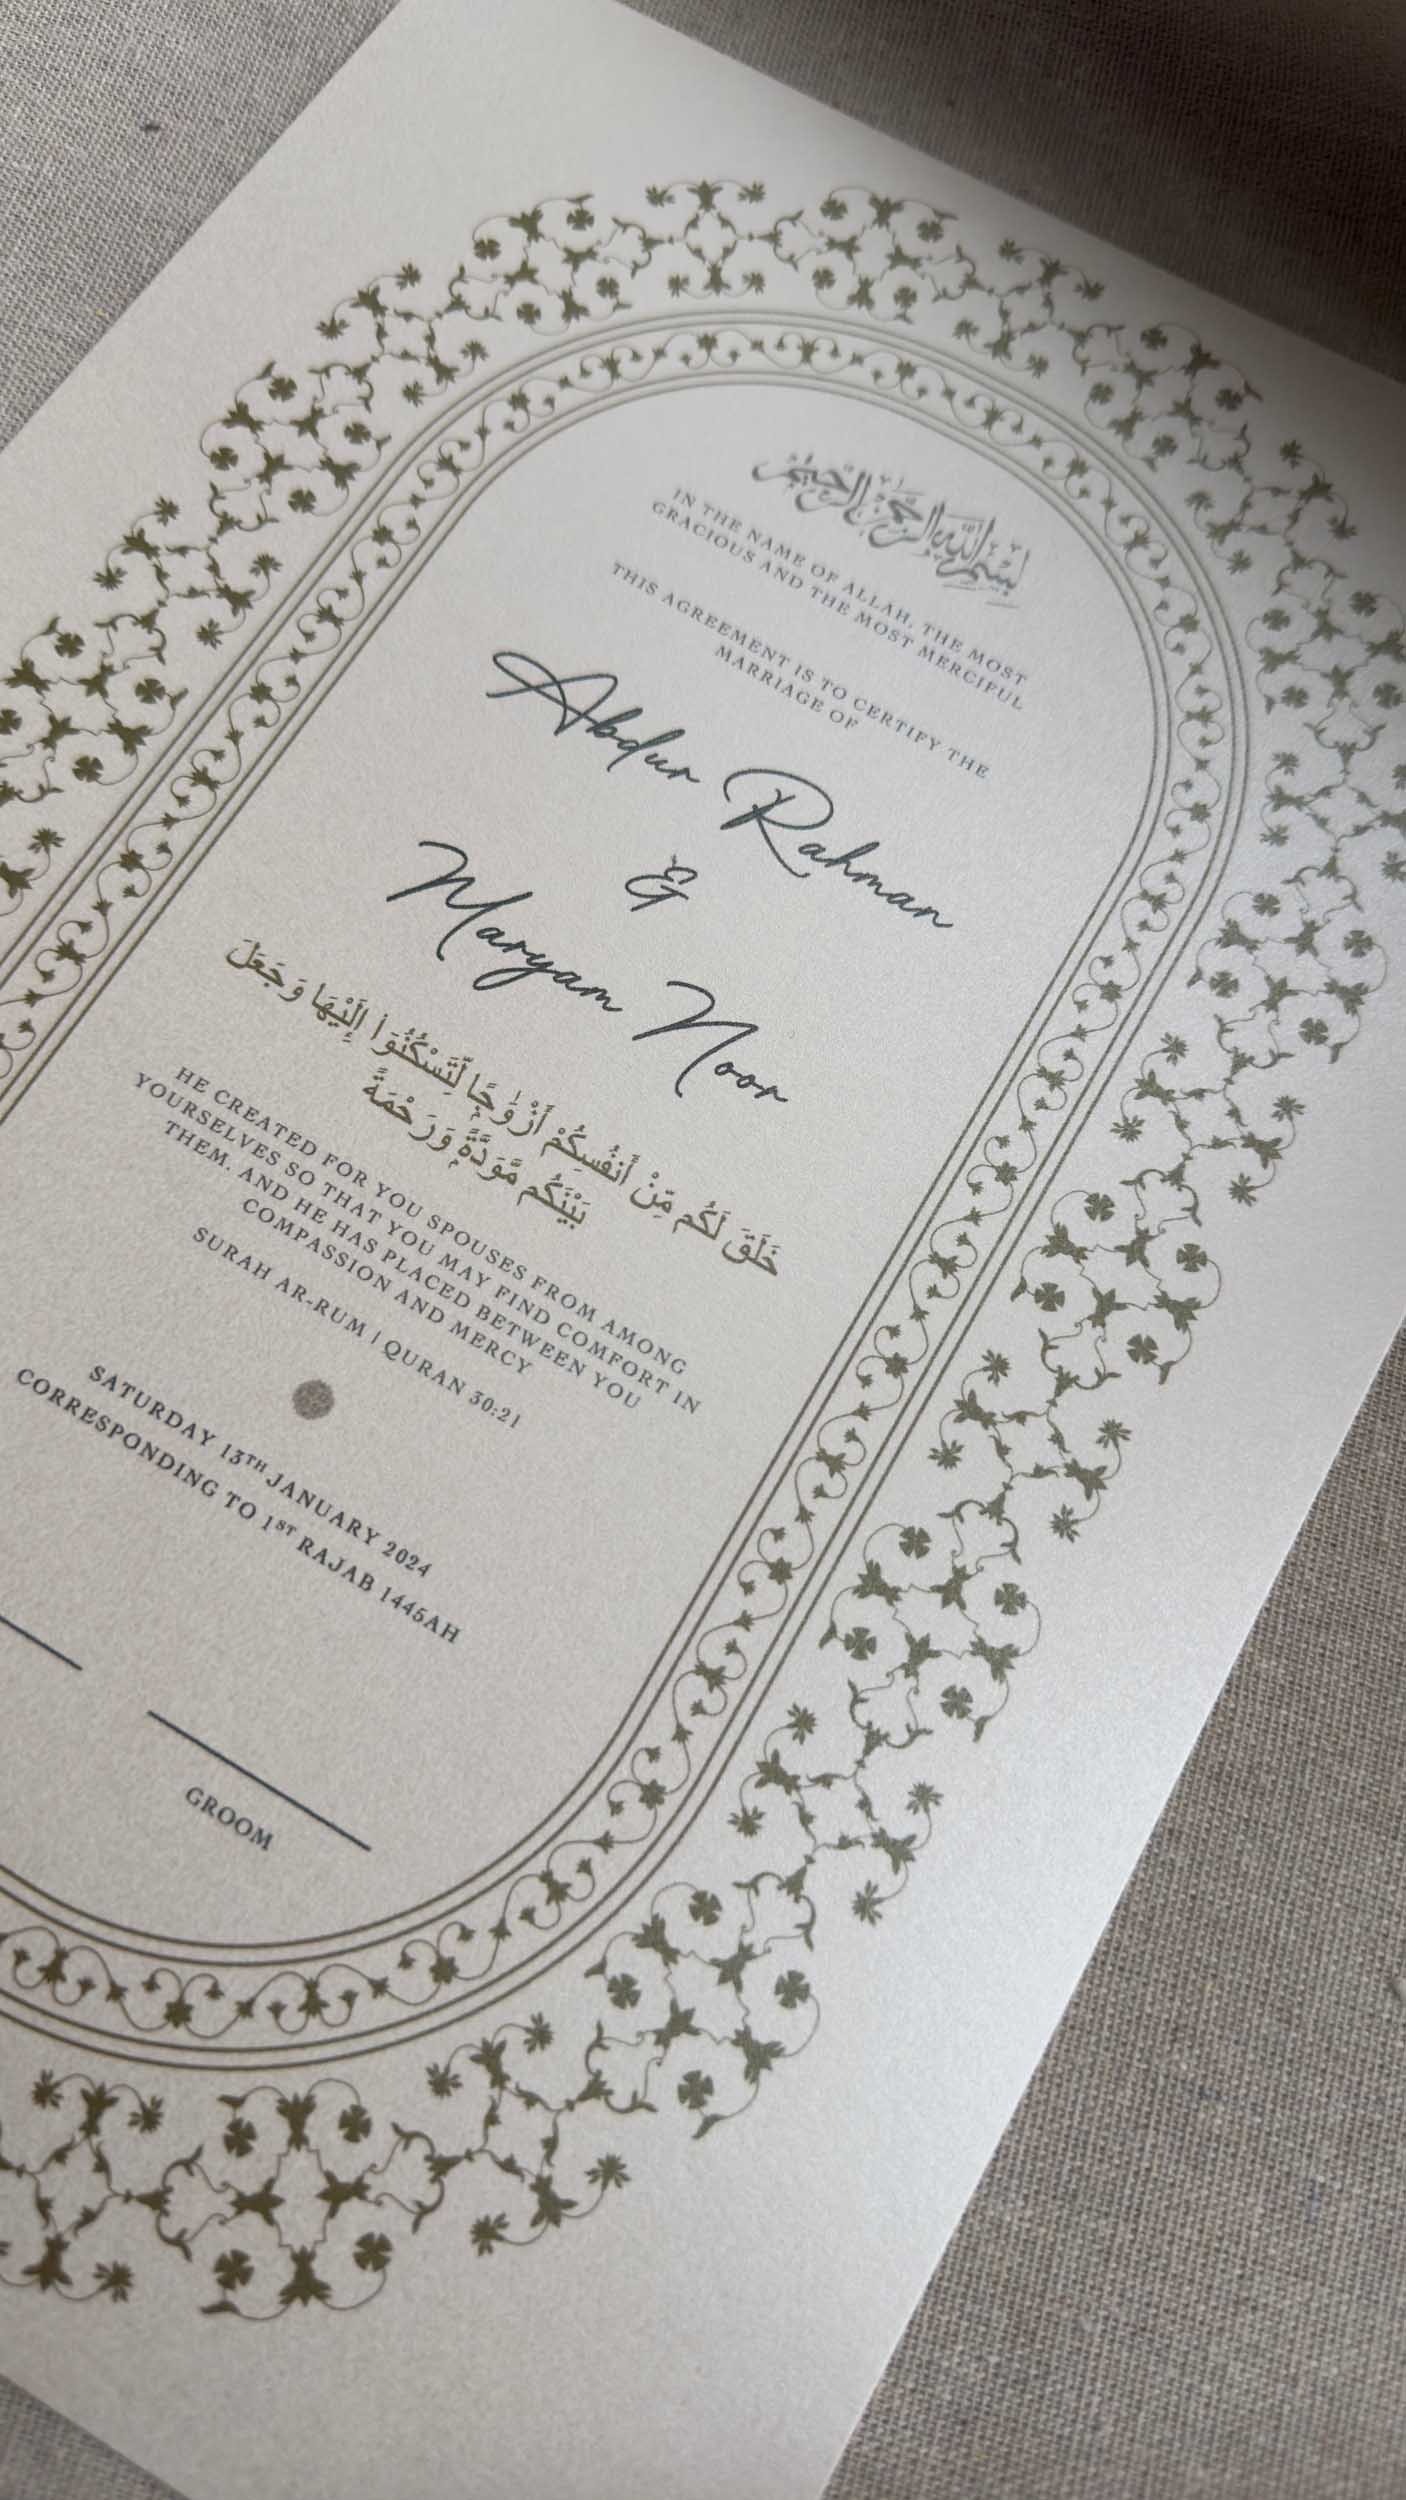 بِسْمِ اللَّهِ الرَّحْمَٰنِ الرَّحِيمِ
IN THE NAME OF ALLAH, THE MOST
GRACIOUS AND THE MOST MERCIFUL
THIS AGREEMENT IS TO CERTIFY THE
MARRIAGE OF
Abdur Rahman
&
Maryam Noor
خَلَقَ لَكُم مِّنْ أَنفُسِكُمْ أَزْوَٰجًا لِّتَسْكُنُوٓا۟ إِلَيْهَا وَجَعَلَ
بَيْنَكُم مَّوَدَّةً وَرَحْمَةً
HE CREATED FOR YOU SPOUSES FROM AMONG
YOURSELVES SO THAT YOU MAY FIND COMFORT IN
THEM. AND HE HAS PLACED BETWEEN YOU
COMPASSION AND MERCY
SURAH AR-RUM | QURAN 30:21
SATURDAY 13TH JANUARY 2024
CORRESPONDING TO 1ST RAJAB 1445AH
GROOM